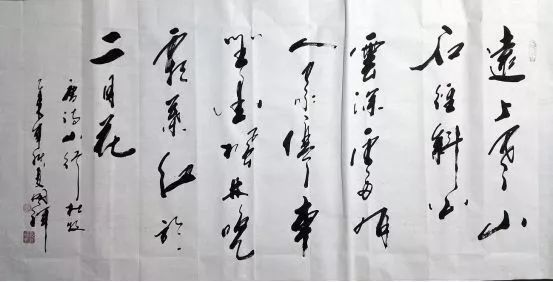 遠上寒山
石徑斜白
雲深處有
人家停車
坐愛楓林晚
霜葉紅於
二月花
唐詩山行 杜牧
年秋月